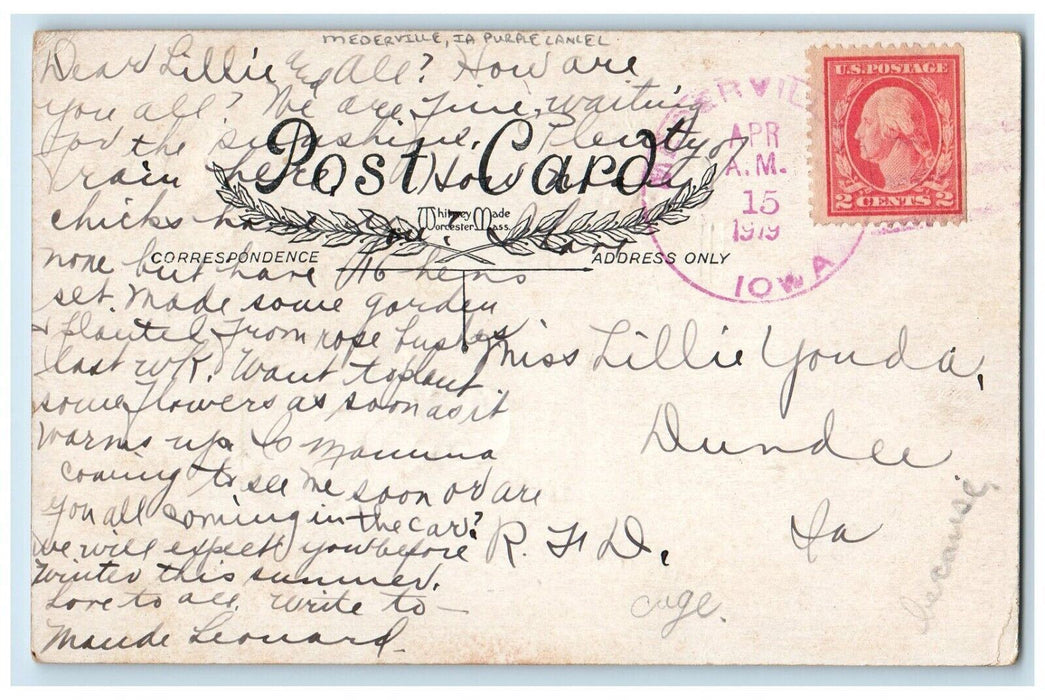 MEDERVILLE, IA PURPLE CANCEL
Dear Lillie and All? How are
you all? We are fine, waiting
for the sunshine. Plenty of
rain here. How many
chicks have you? I have
none but have 16 hens
set. Made some garden
& planted from rose bushes
last wk. Want to plant
some flowers as soon as it
warms up. Is Mamma
coming to see me soon or are
you all coming in the car?
we will expect you before
winter this summer.
Love to all. Write to—
Maude Leonard.
Post Card
Whitney Made
Worcester Mass.
CORRESPONDENCE
ADDRESS ONLY
MEDERVILLE
APR
A.M.
15
1919
IOWA
U.S. POSTAGE
2 CENTS 2
Miss Lillie Youda,
Dundee
R. F. D. Ia
age.
because